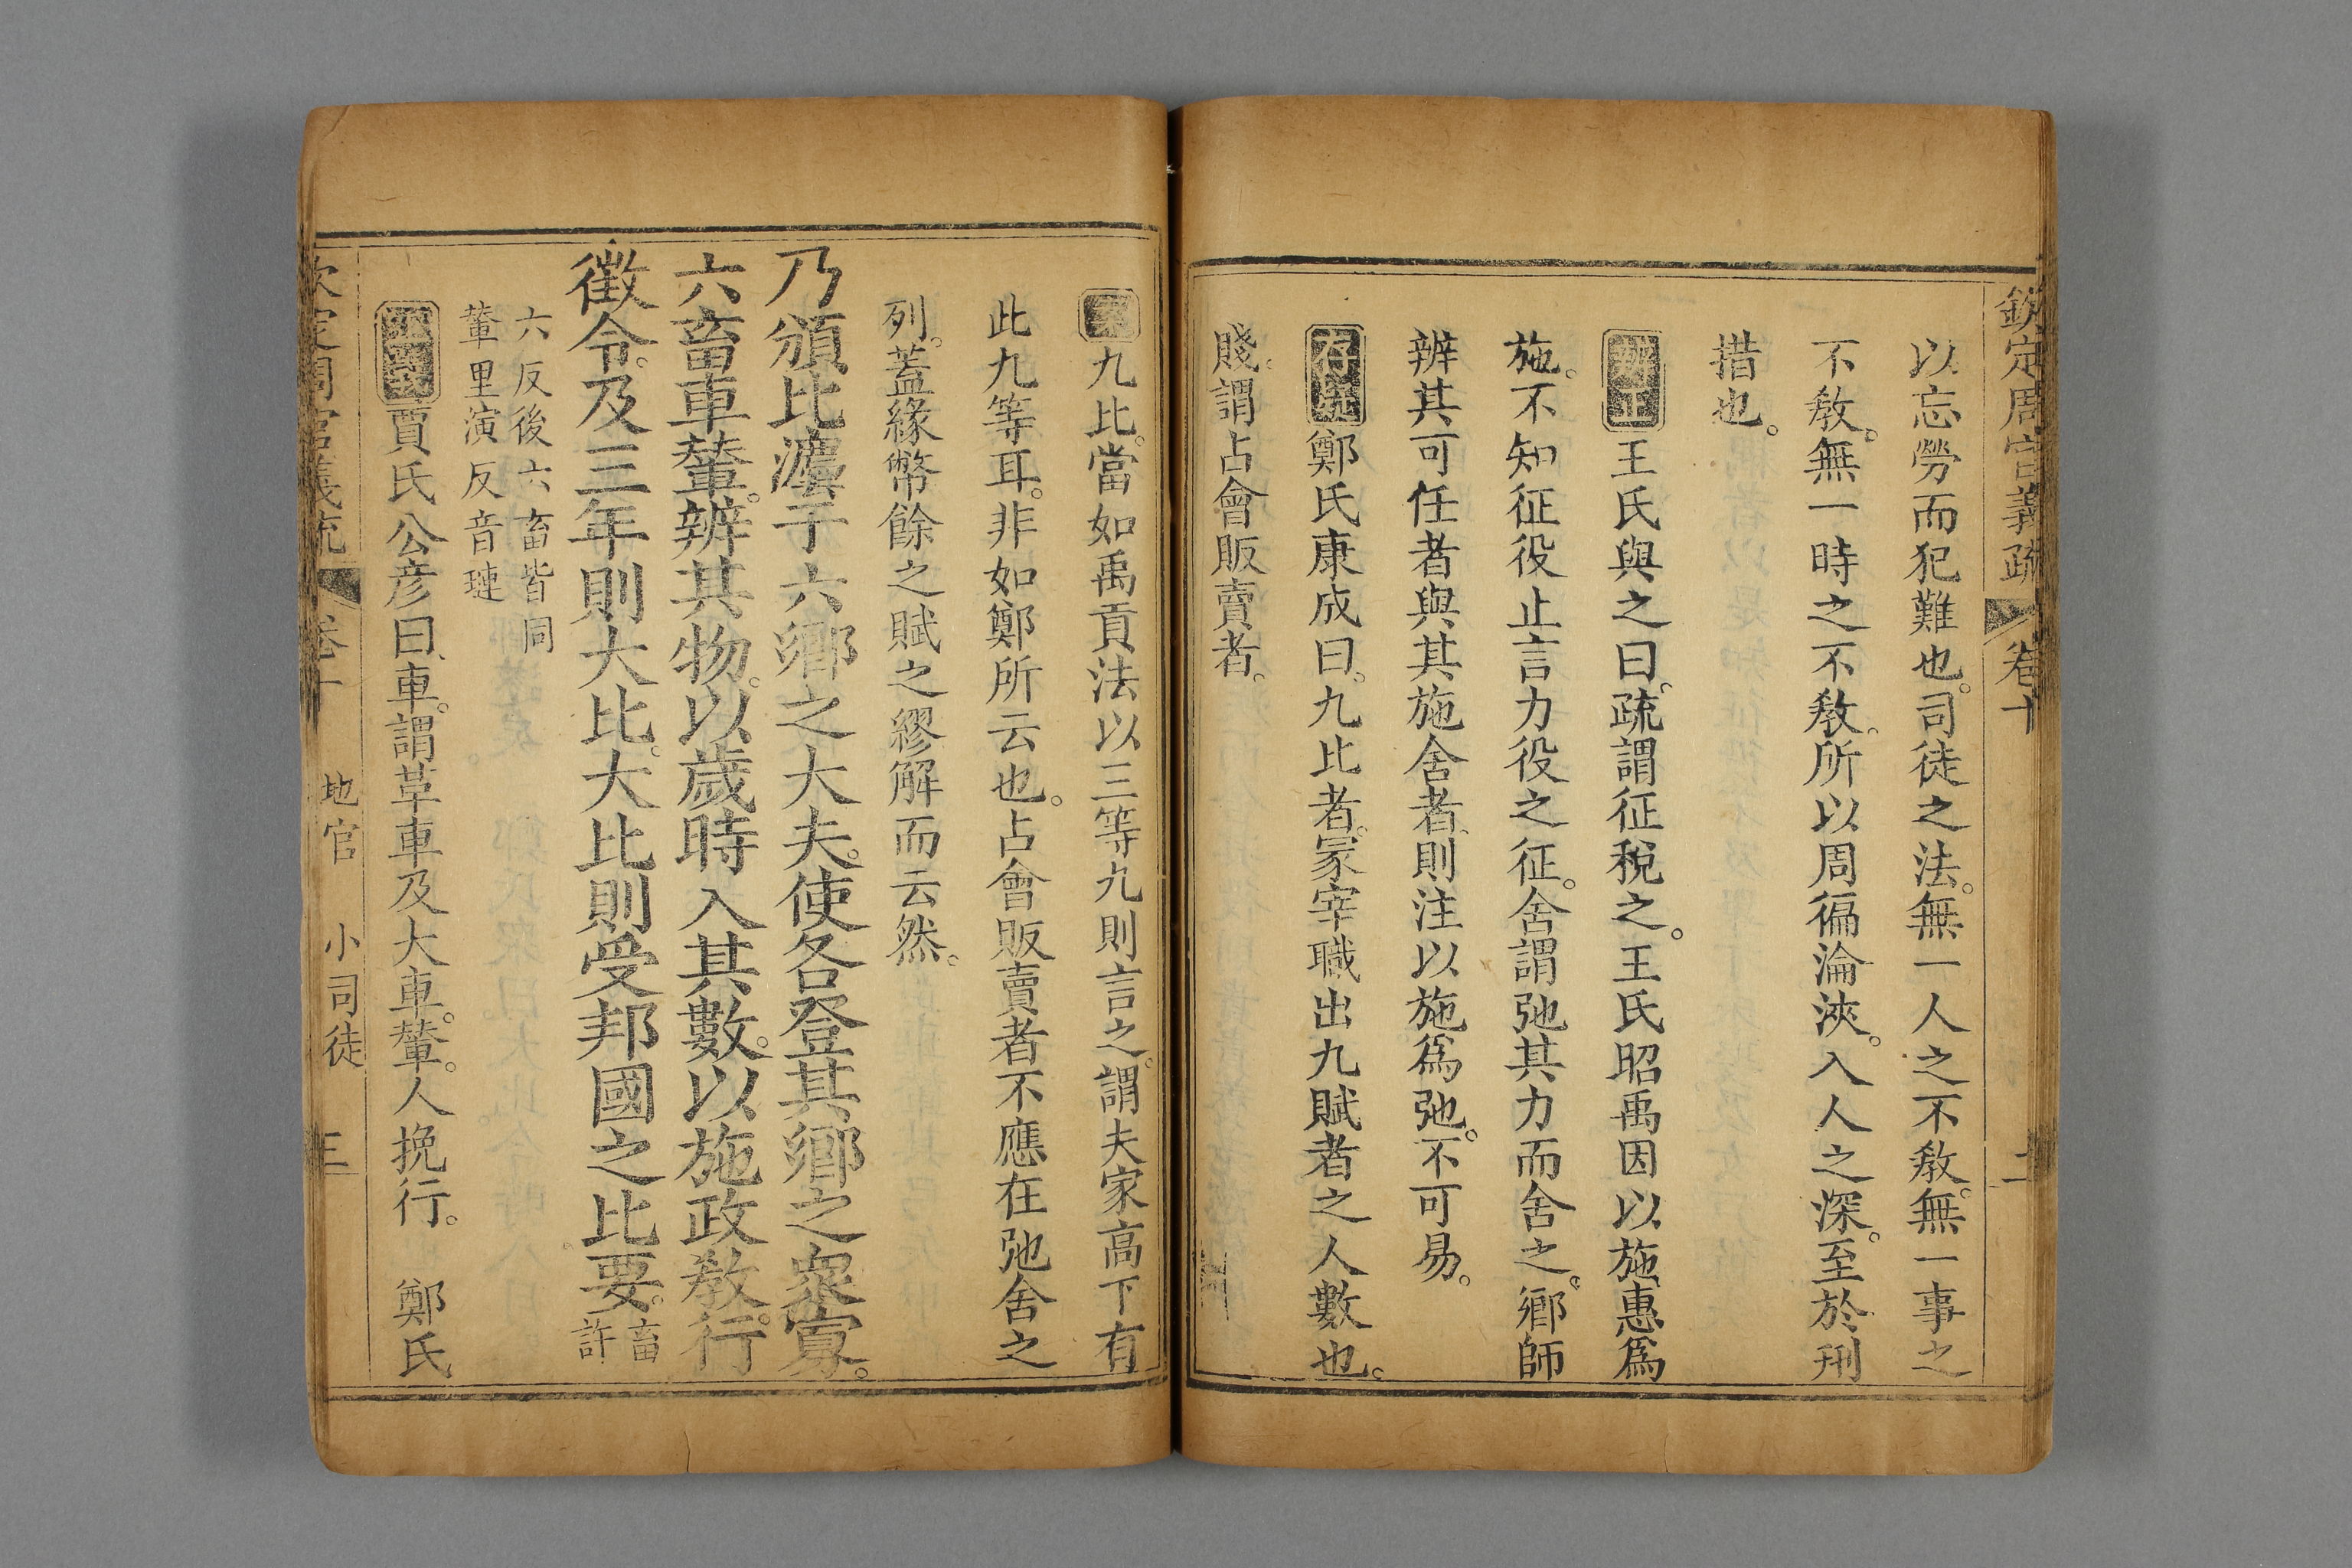 欽定周官義疏 卷十 二
以忘勞而犯難也。司徒之法。無一人之不教。無一事之
不教。無一時之不教。所以周徧淪浹。入人之深。至於刑
措也。
辨正 王氏與之曰。疏謂征稅之。王氏昭禹因以施惠爲
施。不知征役止言力役之征。舍謂弛其力而舍之。鄉師
辨其可任者與其施舍者。則注以施爲弛。不可易。
存疑 鄭氏康成曰。九比者。冡宰職出九賦者之人數也。
賤。謂占會販賣者。
案 九比。當如禹貢法以三等九則言之。謂夫家高下有
此九等耳。非如鄭所云也。占會販賣者不應在弛舍之
列。蓋緣幣餘之賦之繆解而云然。
乃頒比灋于六鄉之大夫。使各登其鄉之衆寡。
六畜車輦。辨其物。以歲時入其數。以施政教。行
徵令。及三年則大比。大比則受邦國之比要。畜許
六反後六畜皆同
輦里演反音璉
賈氏公彦曰。車。謂革車及大車。輦。人挽行。 鄭氏
欽定周官義疏 卷十 地官 小司徒 三